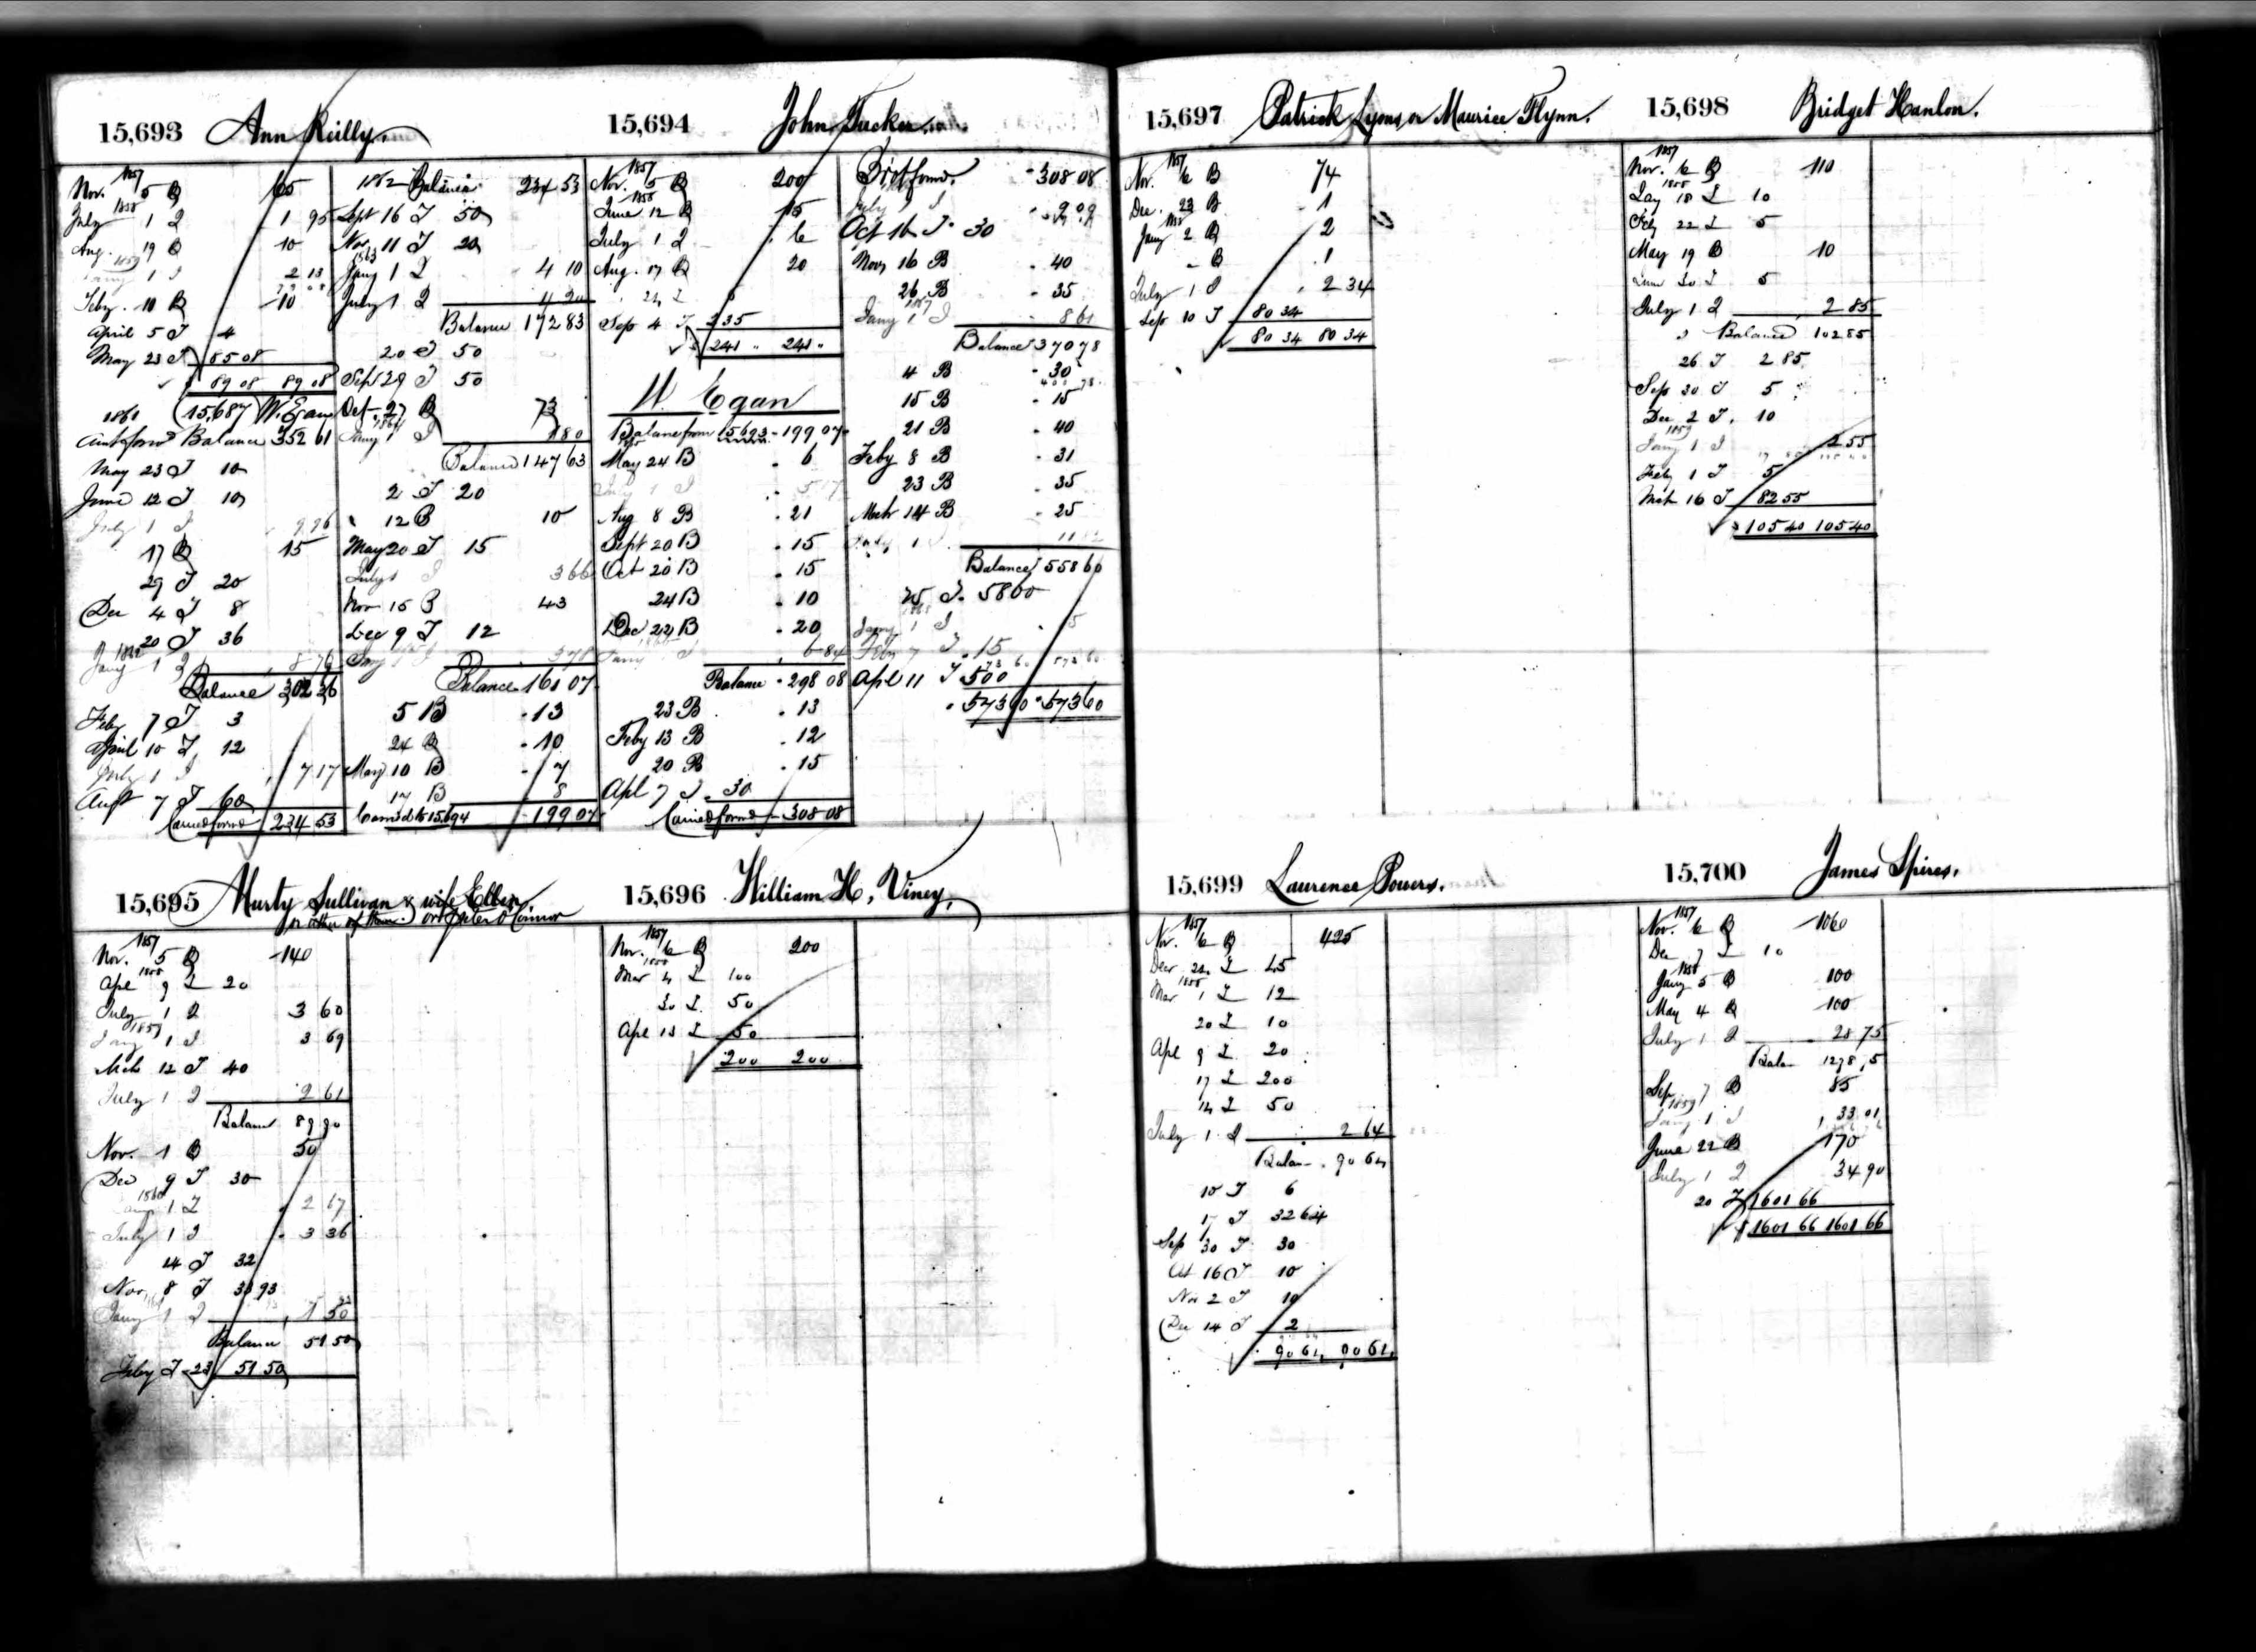 15,693 Ann Reilly.
1857
Nov. 5 B 65
1858
July 1 I 1 95
Aug. 19 B 10
1859
Jany 1 I 2 13
Feby. 10 B 10
April 5 T 4
May 23 T 85 08
$ 89 08 89 08
1861 (15,687) W. Egan
Amt forwd Balance 352 61
May 23 T 10
June 12 T 10
July 1 I 9 96
17 B 15
29 T 20
Dec 4 T 8
20 T 36
1862
Jany 1 I 8 76
Balance 302 36
Feby 7 T 3
April 10 T 12
July 1 I 7 17
Augt 7 T 60
Carried forwd 234 53
1862 Balance 234 53
Sept 16 T 50
Nov. 11 T 20
1863
Jany 1 I 4 10
July 1 I 4 20
Balance 172 83
20 T 50
Sept 29 T 50
Oct. 27 B 73
1864
Jany 1 I 1 80
Balance 147 63
2 T 20
12 B 10
May 20 T 15
July 1 I 3 66
Nov 15 B 43
Dec 9 T 12
Jany 1 I 3 78
Balance 161 07
5 B 13
24 B 10
May 10 B 7
17 B 8
Carrid to 15,694 199 07
15,694 John Tucker
1857
Nov. 5 B 200
1858
June 12 B 15
July 1 I 6
Aug. 17 B 20
24 T 6
Sep 4 T 235
$ 241 " 241 "
W. Egan
Balance from 15693 199 07
May 24 B 6
July 1 I 5 17
Aug 8 B 21
Sept 20 B 15
Oct 20 B 15
24 B 10
Dec 22 B 20
Jany 1 I 6 84
Balance 298 08
23 B 13
Feby 13 B 12
20 B 15
Apl 7 T 30
Carried forwd 308 08
Brot forwd. 308 08
July 1 I 9 09
Oct 16 T 30
Nov 16 B 40
26 B 35
1867
Jany 1 I 8 61
Balance 370 78
4 B 30
15 B 15
21 B 40
Feby 8 B 31
23 B 35
Mch 14 B 25
July 1 I 11 82
Balance 558 60
25 T. 58 00
1868
Jany 1 I 15
Feby 7 T 15
Apl 11 T 500
573 60 573 60
15,695 Murty Sullivan & wife Ellen,
or either of them. or Peter O'Connor
1857
Nov. 5 B 140
1858
Apl 9 T 20
July 1 I 3 60
1859
Jany 1 I 3 69
Mch 12 T 40
July 1 I 2 61
Balance 89 90
Nov. 1 B 50
Dec 9 T 30
1860
Jany 1 I 2 67
July 1 I 3 36
14 T 32
Nov. 8 T 33 93
Jany 1 I 1 50
Balance 51 50
Feby T 23 51 50
15,696 William H. Viney.
1857
Nov. 6 B 200
1858
Mar 4 T 100
30 T 50
Apl 13 T 50
200 200
15,697 Patrick Lyons or Maurice Flynn.
1857
Nov. 6 B 74
Dec. 23 B 1
1858
Jany 2 B 2
" B 1
July 1 I 2 34
Sep 10 T 80 34
80 34 80 34
15,698 Bridget Hanlon.
1857
Nov. 6 B 110
1858
Jay 18 T 10
Feby 22 T 5
May 19 B 10
June 30 T 5
July 1 I 2 85
Balance 102 85
26 T 2 85
Sep 20 T 5
Dec 2 T. 10
1859
Jany 1 I 2 55
Feby 1 T 5
Mch 16 T 82 55
$ 105 40 105 40
15,699 Laurence Powers.
1857
Nov. 6 B 425
Decr 24 T 45
1858
Mar 1 T 12
20 T 10
Apl 9 T 20
17 T 200
14 T 50
July 1 I 2 64
Balan 90 64
10 T 6
17 T 32 64
Sep 30 T 30
Oct 16 T 10
Nov 2 T 10
Dec 14 T 2
90 64 90 64
15,700 James Spires.
1857
Nov. 6 B 1060
Dec 7 T 10
1858
Jany 5 B 100
May 4 B 100
July 1 I 28 75
Balan 1278 75
Sep 7 B 85
1859
Jany 1 I 33 01
June 22 B 170
July 1 I 34 90
20 T 1601 66
$ 1601 66 1601 66